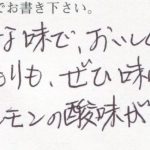 でお書き下さい。
な味で、おいし
もりも、ぜひ味
レモンの酸味が